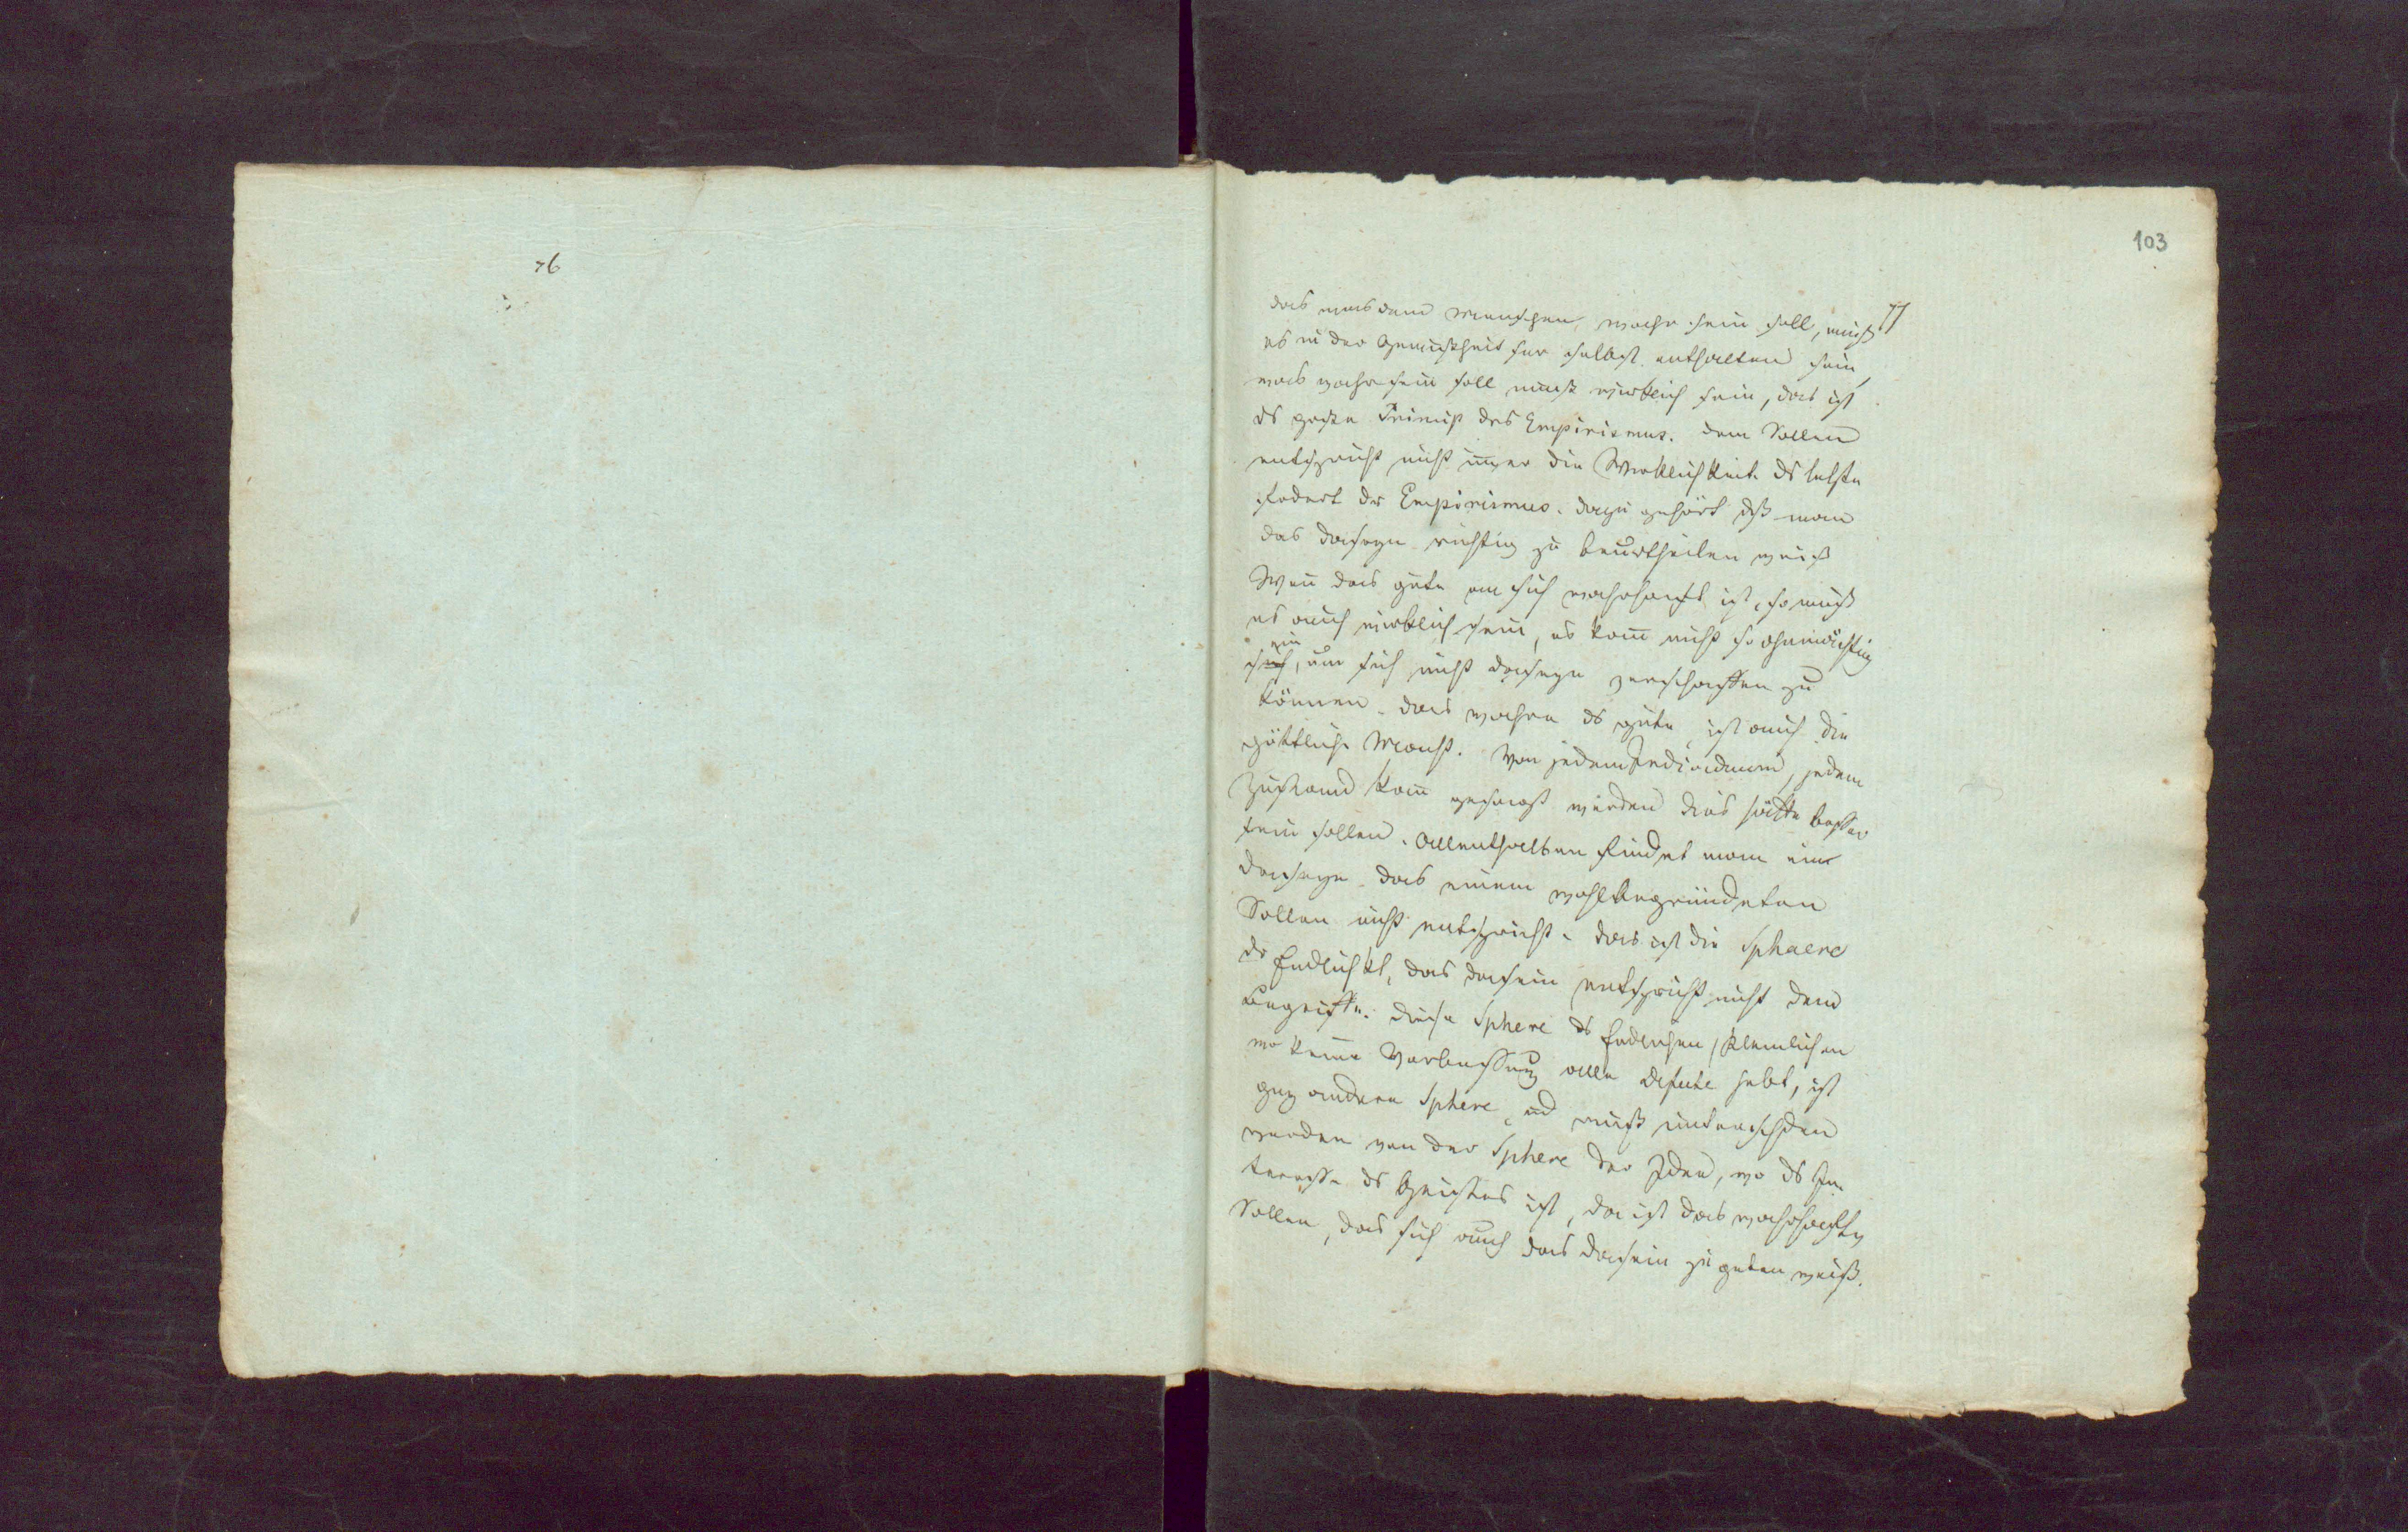 76
103
77
das was dem Menschen wahr sein soll, muß
es in der Gewißheit sein selbst enthalten sein,
was wahr sein soll muß wirklich sein, das ist
ds große Princip des Empirismus. dem Sollen
entspricht nicht immer die Wirklichkeit. ds letzte
fodert der Empirismus. dazu gehört dß man
das daseyn richtig zu beurtheilen weiß
Wenn das gute an sich wahrhaft ist, so muß
es auch wirklich sein, es kann nicht so ohnmächtig
sein, um sich nicht daseyn verschaffen zu
können. das wahre ds gute, ist auch die
göttliche Macht. Von jedem Individuum, jedem
Zustand kann gesagt werden dies hätte besser
sein sollen. allenthalben findet man ein
daseyn das einem wohlbegründeten
Sollen nicht entspricht. das ist die Sphaere
dr Endlichkt, das dasein entspricht nicht dem
Begriffe. diese Sphere ds Endlichen,
wo keine Verbesserung alle defecte hebt, ist
andere Sphere, und muß unterschden
werden von der Sphere der Idee, wo ds In-
teresse ds Geistes ist, da ist das wahrhafte
Sollen, das sich auch das dasein zu geben weiß.